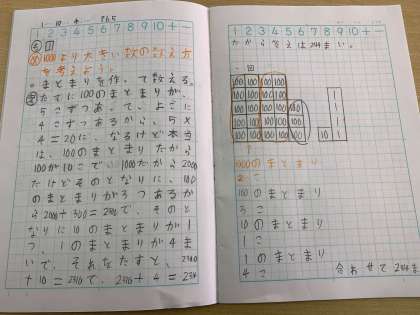 P65
1 2 3 4 5 6 7 8 9 10 + −
1000より大きい数の数え方
を考えよう。
まとまりを作って数える。
たてに100のまとまりが、
5こずつあって、よこに
4こずつあるから、5×
4=20に、なるけど本当
は、100のまとまりだから
100が10こで1000だから2000
だけどそのとなりに、100
のまとまりが3つあるか
ら2000+300=2300で、そのと
なりに10のまとまりが1
つ、1のまとまりが4ま
いで、そをたすと、2300
+10=2310で、2310+4=2314
1 2 3 4 5 6 7 8 9 10 + −
だから答えは2314まい。
図
100 100 100 100
100 100 100 100 1
100 100 100 100 100 1
100 100 100 100 100 1
100 100 100 100 100 10 1
1000のまとまり
2こ
100のまとまり
3こ
10のまとまり
1こ
1のまとまり
4こ 合わせて2314ま